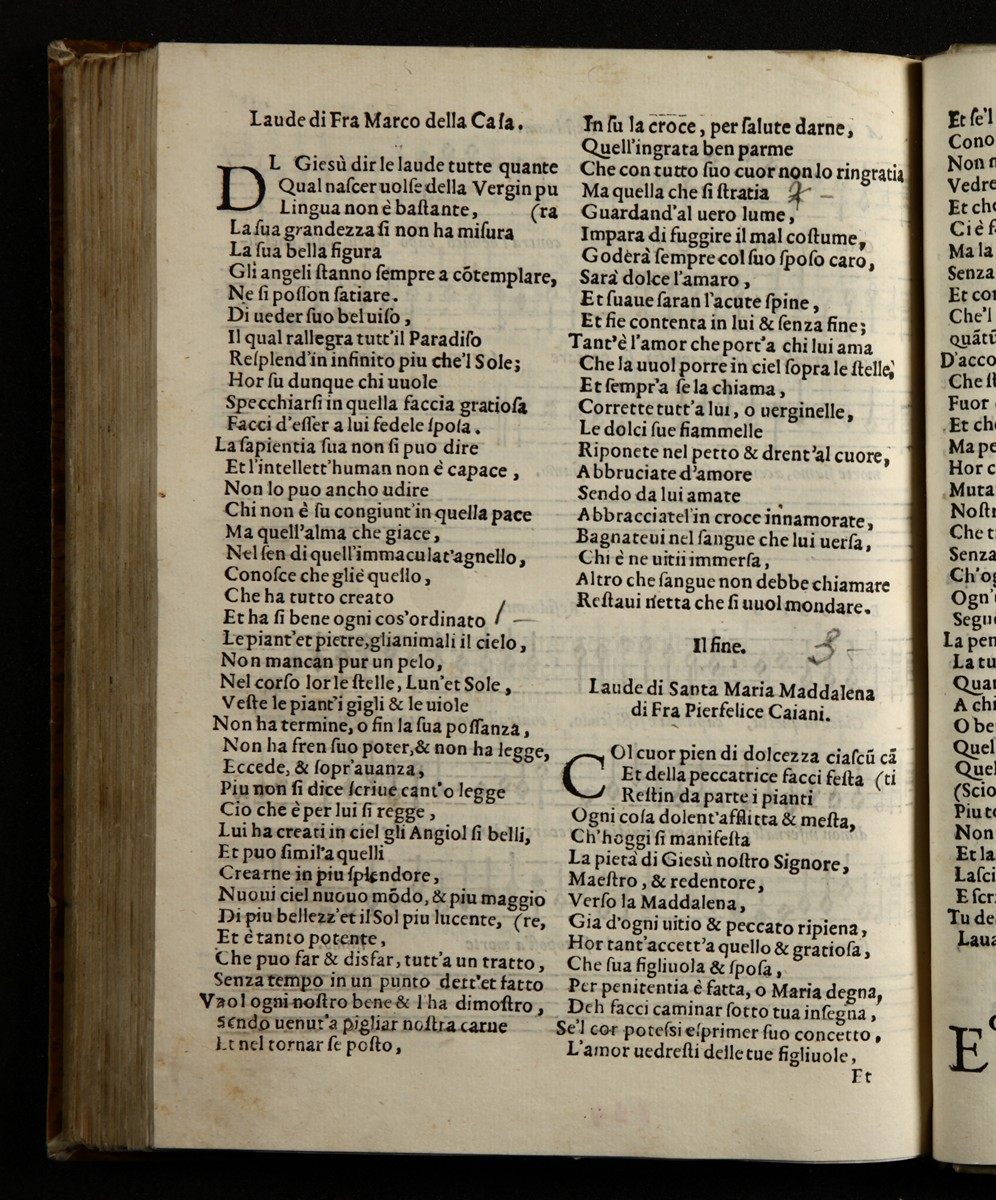 Laude di Fra Marco della Caſa.
DL Gieſù dir le laude tutte quante
Qual naſcer uolſe della Vergin pu
Lingua non è baſtante, (ra
La ſua grandezza ſi non ha miſura
La ſua bella figura
Gli angeli ſtanno ſempre a cõtemplare,
Ne ſi poſſon ſatiare.
Di ueder ſuo bel uiſo,
Il qual rallegra tutt'il Paradiſo
Reſplend'in infinito piu che'l Sole;
Hor ſu dunque chi uuole
Specchiarſi in quella faccia gratioſa
Facci d'eſſer a lui fedele ſpoſa.
La ſapientia ſua non ſi puo dire
Et l'intellett'human non è capace,
Non lo puo ancho udire
Chi non è ſu congiunt'in quella pace
Ma quell'alma che giace,
Nel ſen di quell'immaculat'agnello,
Conoſce che gliè quello,
Che ha tutto creato
Et ha ſi bene ogni coſ'ordinato
Le piant'et pietre,gli animali il cielo,
Non mancan pur un pelo,
Nel corſo lor le ſtelle, Lun'et Sole,
Veſte le piant'i gigli & le uiole
Non ha termine, o fin la ſua poſſanza,
Non ha fren ſuo poter,& non ha legge,
Eccede, & ſopr'auanza,
Piu non ſi dice ſcriue cant'o legge
Cio che è per lui ſi regge,
Lui ha creati in ciel gli Angiol ſi belli,
Et puo ſimil'a quelli
Crearne in piu ſplendore,
Nuoui ciel nuouo mõdo, & piu maggio
Di piu bellezz'et il Sol piu lucente, (re,
Et è tanto potente,
Che puo far & disfar, tutt'a un tratto,
Senza tempo in un punto dett'et fatto
Vuol ogni noſtro bene & l ha dimoſtro,
Sendo uenut'a pigliar noſtra carne
Et nel tornar ſe poſto,
In ſu la croce, per ſalute darne,
Quell'ingrata ben parme
Che con tutto ſuo cuor non lo ringratia
Ma quella che ſi ſtratia
Guardand'al uero lume,
Impara di fuggire il mal coſtume,
Goderà ſempre col ſuo ſpoſo caro,
Sarà dolce l'amaro,
Et ſuaue ſaran l'acute ſpine,
Et fie contenta in lui & ſenza fine;
Tant'è l'amor che port'a chi lui ama
Che la uuol porre in ciel ſopra le ſtelle,
Et ſempr'a ſe la chiama,
Correte tutt'a lui, o uerginelle,
Le dolci ſue fiammelle
Riponete nel petto & drent'al cuore,
Abbruciate d'amore
Sendo da lui amate
Abbracciatel'in croce innamorate,
Bagnateui nel ſangue che lui uerſa,
Chi è ne uitii immerſa,
Altro che ſangue non debbe chiamare
Reſtaui netta che ſi uuol mondare.
Il fine. 3 -
Laude di Santa Maria Maddalena
di Fra Pierfelice Caiani.
COl cuor pien di dolcezza ciaſcũ cã
Et della peccatrice facci feſta (ti
Reſtin da parte i pianti
Ogni coſa dolent'afflitta & meſta,
Ch'hoggi ſi manifeſta
La pietà di Gieſù noſtro Signore,
Maeſtro, & redentore,
Verſo la Maddalena,
Gia d'ogni uitio & peccato ripiena,
Hor tant'accett'a quello & gratioſa,
Che ſua figliuola & ſpoſa,
Per penitentia è fatta, o Maria degna,
Deh facci caminar ſotto tua inſegna,
Se'l cor poteſsi eſprimer ſuo concetto,
L'amor uedreſti delle tue figliuole,
Et
Et ſe'l
Cono
Vedre
Et che
Ma la
Senza
Che'l
D'acco
Fuor
Et ch
Ma pe
Hor c
Muta
Noſtr
Che t
Senza
Ogn'
Segu
La pen
La tu
Quan
A chi
O be
Quel
Quel
(Scio
Piu t
Non
Et la
Laſci
E ſcr
Tu de
Laua
E